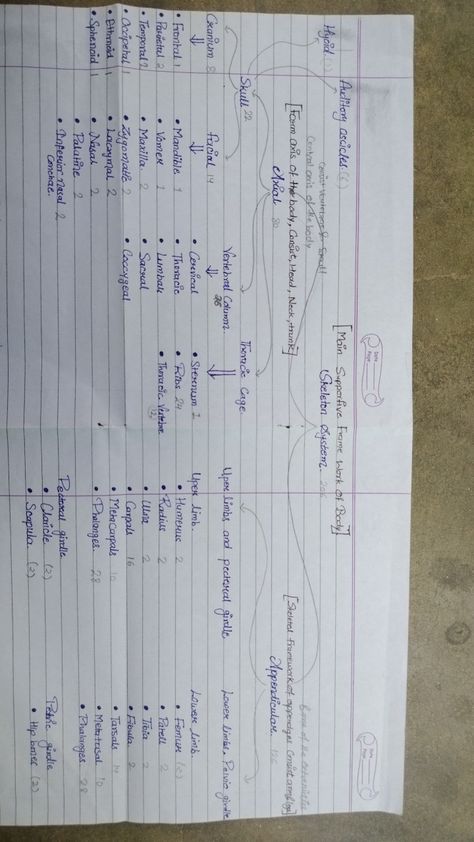 [Main Supportive Frame Work of Body]
Skeleton System. 206
Axial 80
[Form axis of the body, Consist, Head, Neck, trunk]
Central axis of the body
Appendicular 126
Hyoid (1)
Auditory ossicles (6)
Skull 22
Vertebral Column. 26
Thoracic Cage.
Upper limbs and pectoral girdle
Lower limbs, Pelvic girdle
Cranium 8
• Frontal 1
• Parietal 2
• Temporal 2
• Occipetal 1
• Ethnoid 1
• Sphenoid 1
Facial 14
• Mandible 1
• Vomer 1
• Maxilla 2
• Zygomatic 2
• Lacrymal 2
• Nasal 2
• Palatine 2
• Inferior nasal 2
Conchae.
• Cervical
• Thoracic
• Lumbar
• Sacral
• Coccygeal
• Sternum 1
• Ribs 24
• Thoracic Vertebrae
12
Upper limb.
• Humerus 2
• Radius 2
• Ulna 2
• Carpals 16
• Metacarpals 10
• Phalanges. 28
Pectoral girdle
• Clavicle (2)
• Scapula. (2)
Lower limb.
• Femur (2)
• Patell 2
• Tibia 2
• Fibula 2
• Tarsals 14
• Metatarsal 10
• Phalanges 28
Pelvic girdle
• Hip bones (2)
Date
Page
Date
Page